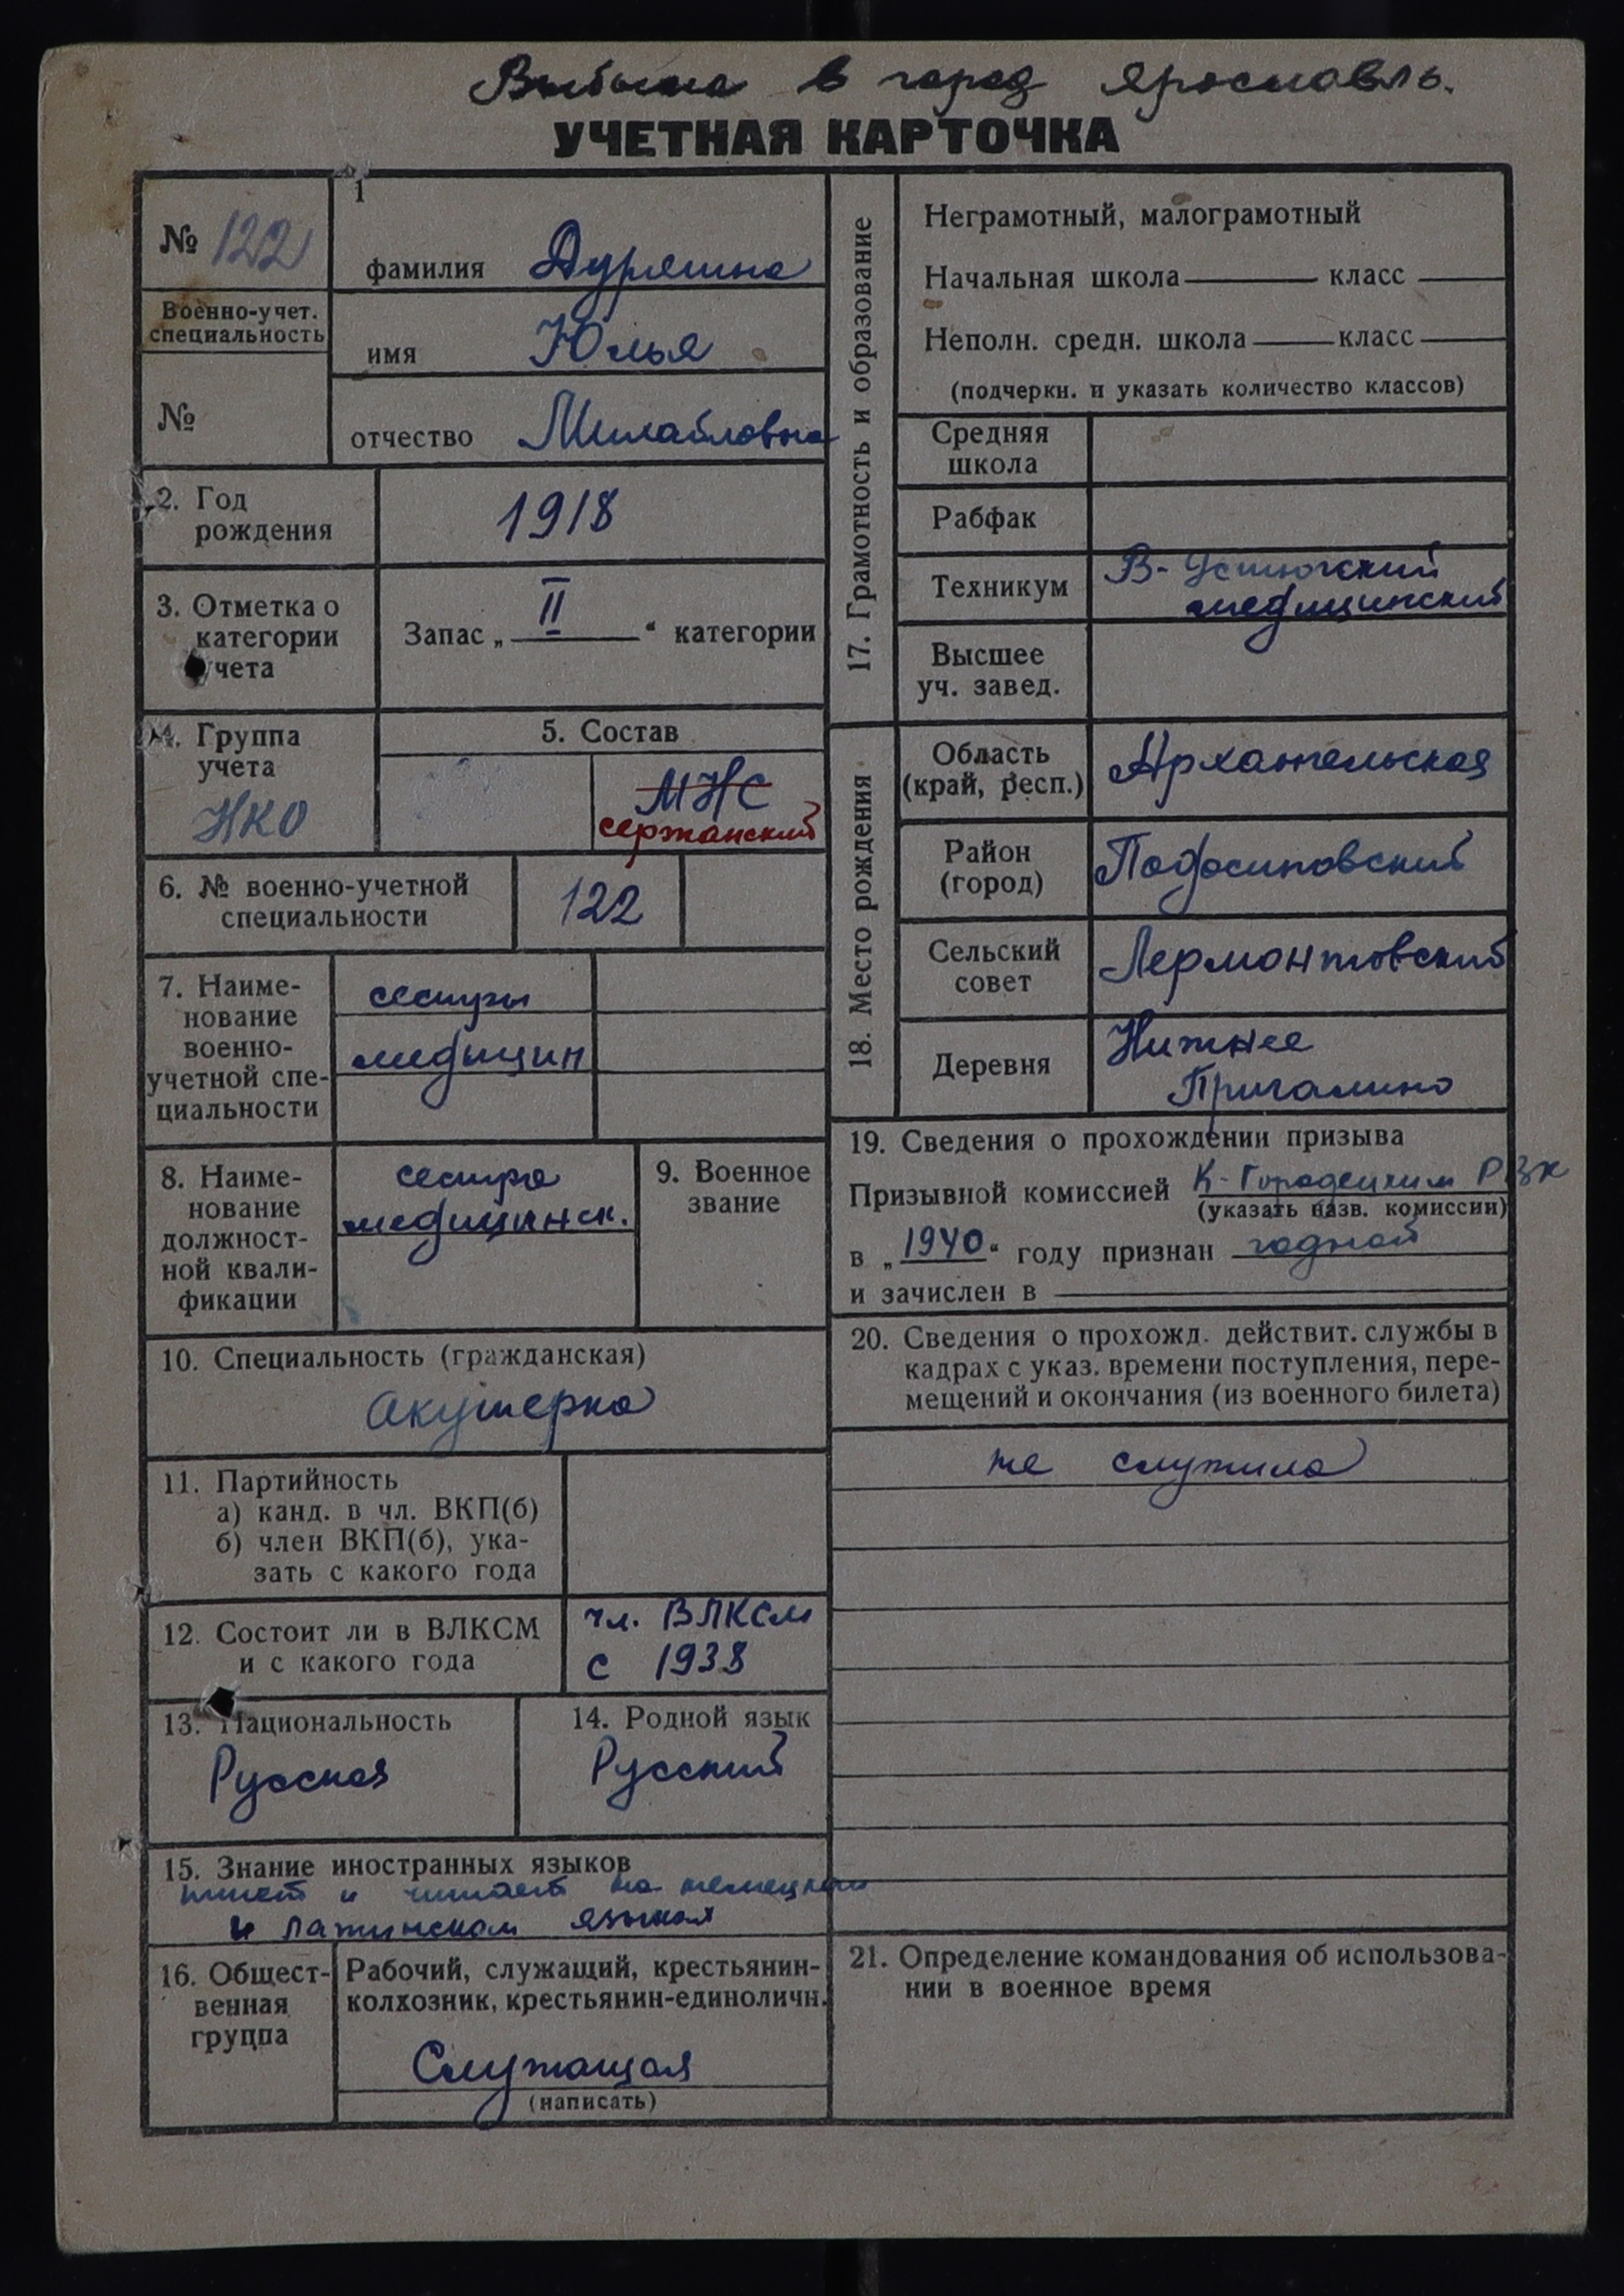 Выбыла в город Ярославль.
УЧЕТНАЯ КАРТОЧКА
№ 122
Военно-учет.
специальность
№
1
фамилия Дурягина
имя Юлья
отчество Михайловна
2. Год
рождения
1918
3. Отметка о
категории
учета
Запас „ II “ категории
4. Группа
учета
НКО
5. Состав
МНС
сержанский
6. № военно-учетной
специальности
122
7. Наиме-
нование
военно-
учетной спе-
циальности
сестры
медицин
8. Наиме-
нование
должност-
ной квали-
фикации
сестра
медицинск.
9. Военное
звание
10. Специальность (гражданская)
акушерка
11. Партийность
а) канд. в чл. ВКП(б)
б) член ВКП(б), ука-
зать с какого года
12. Состоит ли в ВЛКСМ
и с какого года
чл. ВЛКСМ
с 1938
13. Национальность
Русская
14. Родной язык
Русский
15. Знание иностранных языков
пишет и читает на немецком
и латинском языках
16. Общест-
венная
группа
Рабочий, служащий, крестьянин-
колхозник, крестьянин-единоличн.
Служащая
(написать)
17. Грамотность и образование
Неграмотный, малограмотный
Начальная школа класс
Неполн. средн. школа класс
(подчеркн. и указать количество классов)
Средняя
школа
Рабфак
Техникум
В-Устюгский
медицинский
Высшее
уч. завед.
18. Место рождения
Область
(край, респ.)
Архангельская
Район
(город)
Подосиновский
Сельский
совет
Лермонтовский
Деревня
Нижнее
Пригалино
19. Сведения о прохождении призыва
Призывной комиссией К-Городецким РВК
(указать назв. комиссии)
в „ 1940 “ году признан годной
и зачислен в
20. Сведения о прохожд. действит. службы в
кадрах с указ. времени поступления, пере-
мещений и окончания (из военного билета)
не служила
21. Определение командования об использова-
нии в военное время